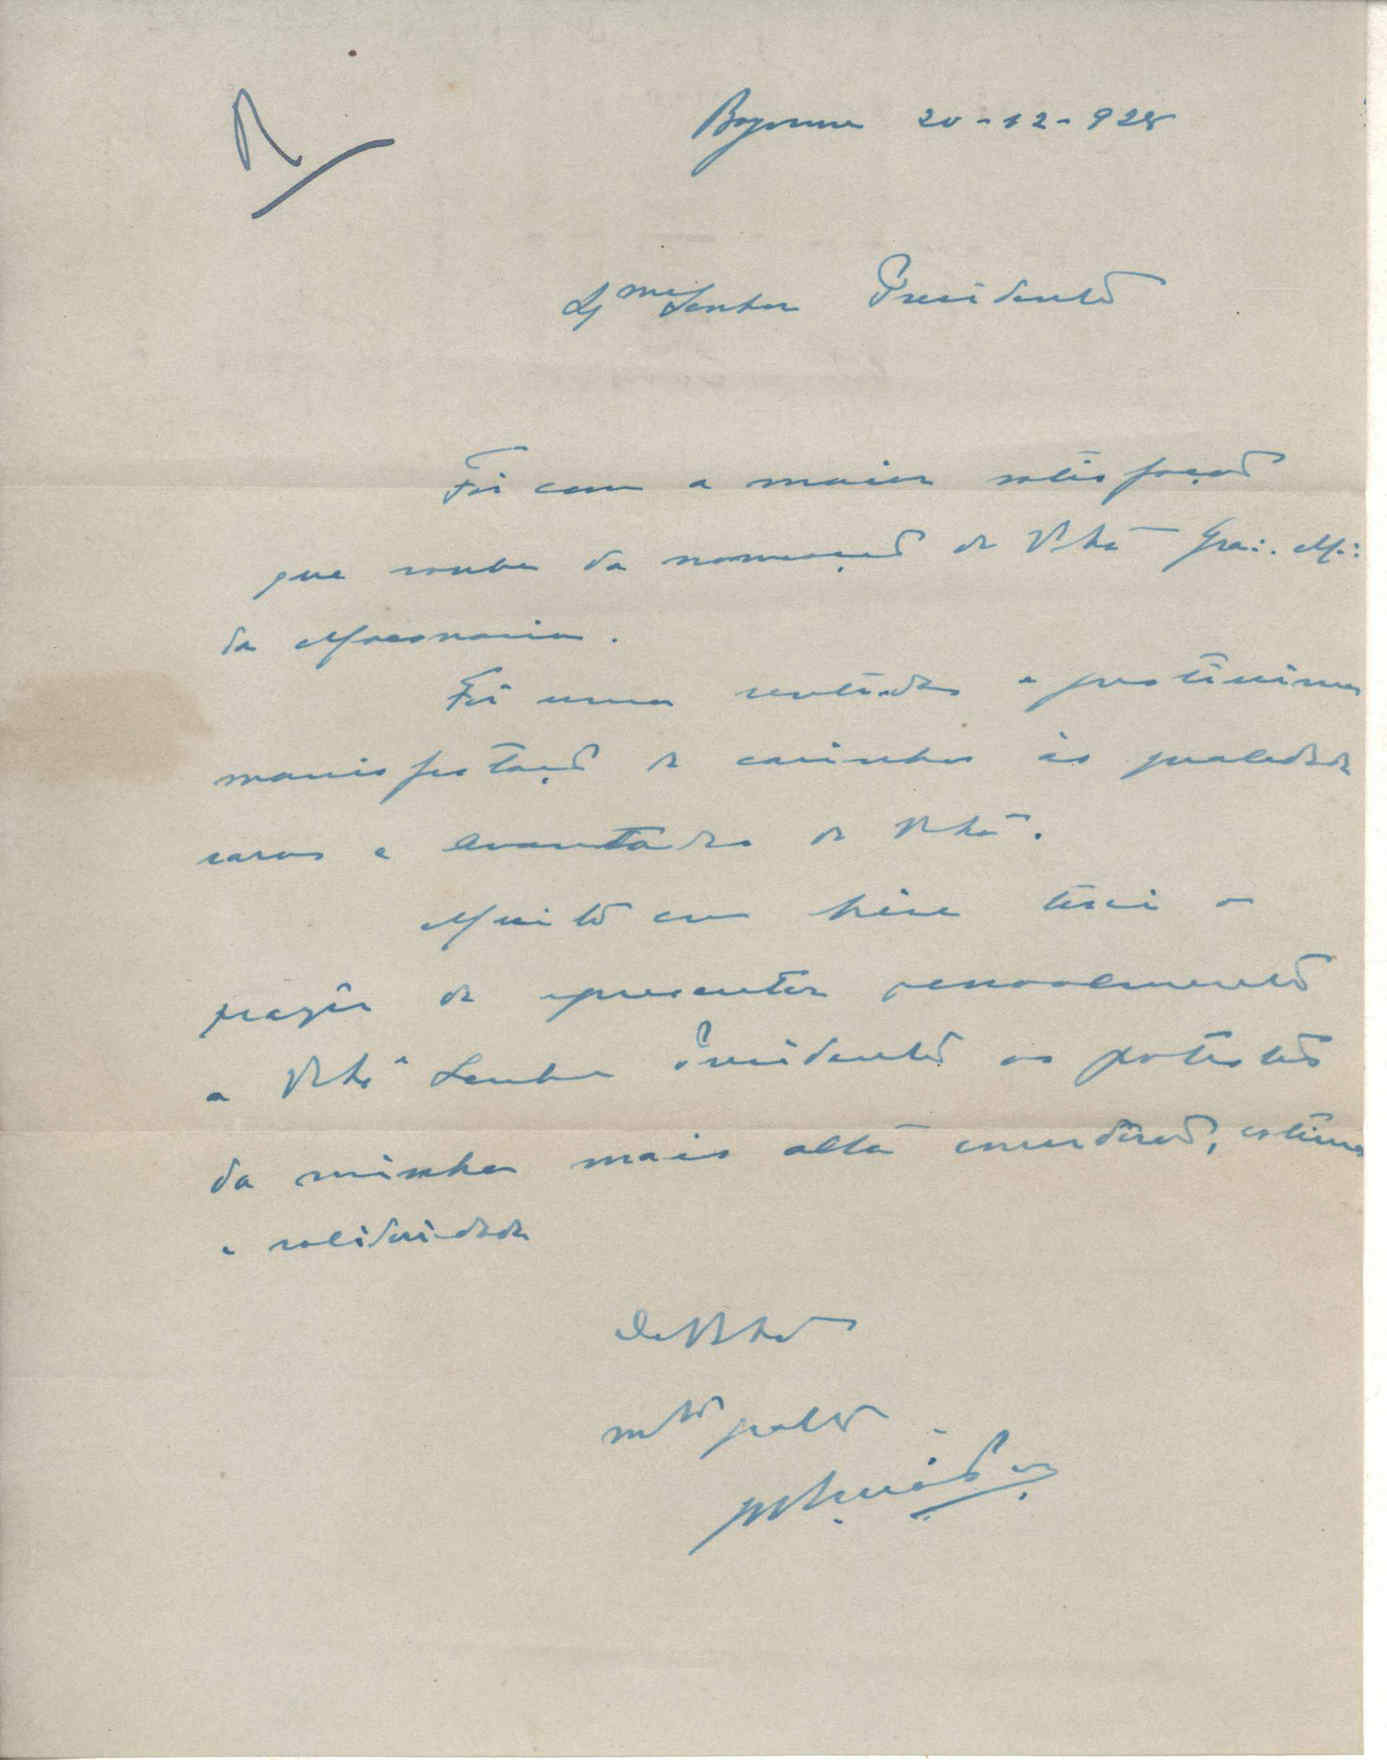 R
Bayonne 20-12-928
Senhor Presidente
Foi com a maior satisfação
que soube da nomeação de V. Exª Grã∴ M∴
da Maçonaria.
Foi uma sentida e justissima
manifestação de carinho ás qualidades
raras e de V. Exª.
Muito em breve terei o
prazer de apresentar pessoalmente
a V. Exª Senhor Presidente os protestos
da minha mais alta consideração, estima
e solidariedade
De V. Exª
mto